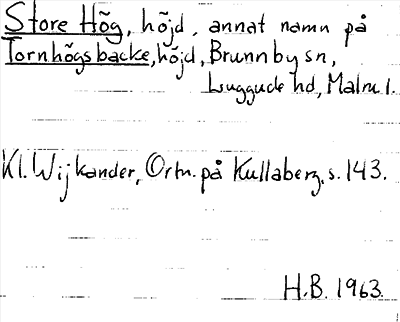 Store Hög, höjd, annat namn på
Tornhögsbacke, höjd, Brunnby sn,
Luggude hd, Malm l.
Kl. Wijkander, Ortn. på Kullaberg, s. 143.
H.B. 1963.